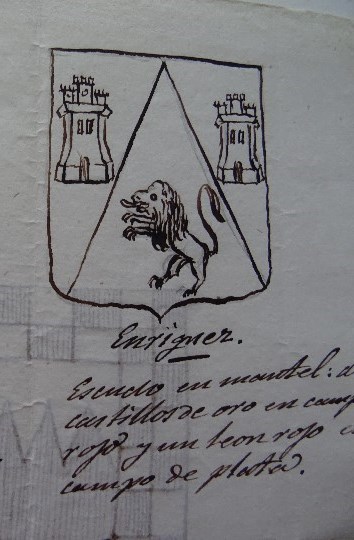 Enriquez.
Escudo en mantel: d
castillos de oro en camp
rojo y un leon rojo e
campo de plata.